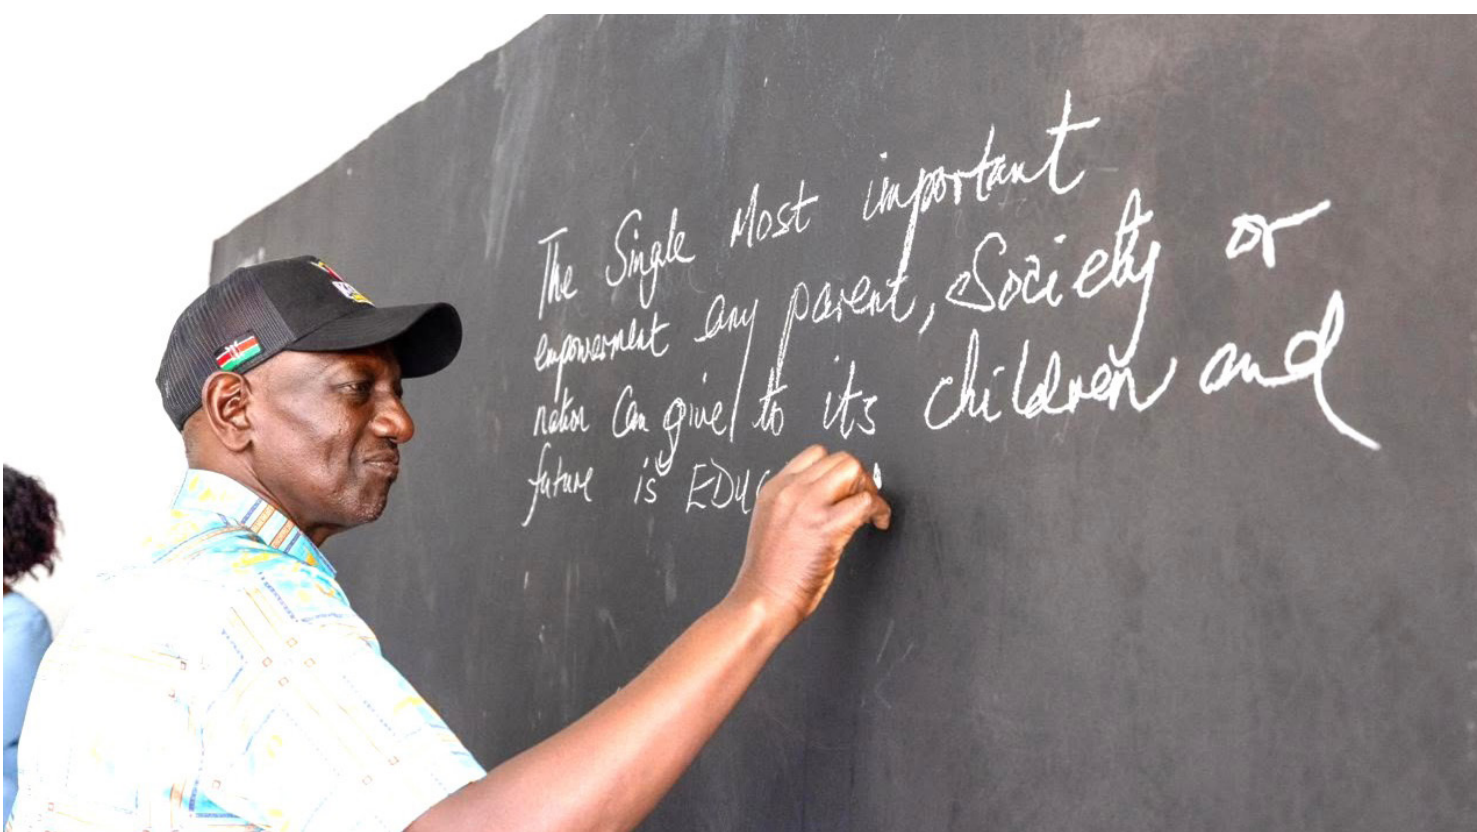 The Single Most important
empowerment any parent, Society or
nation Can give to its children and
future is